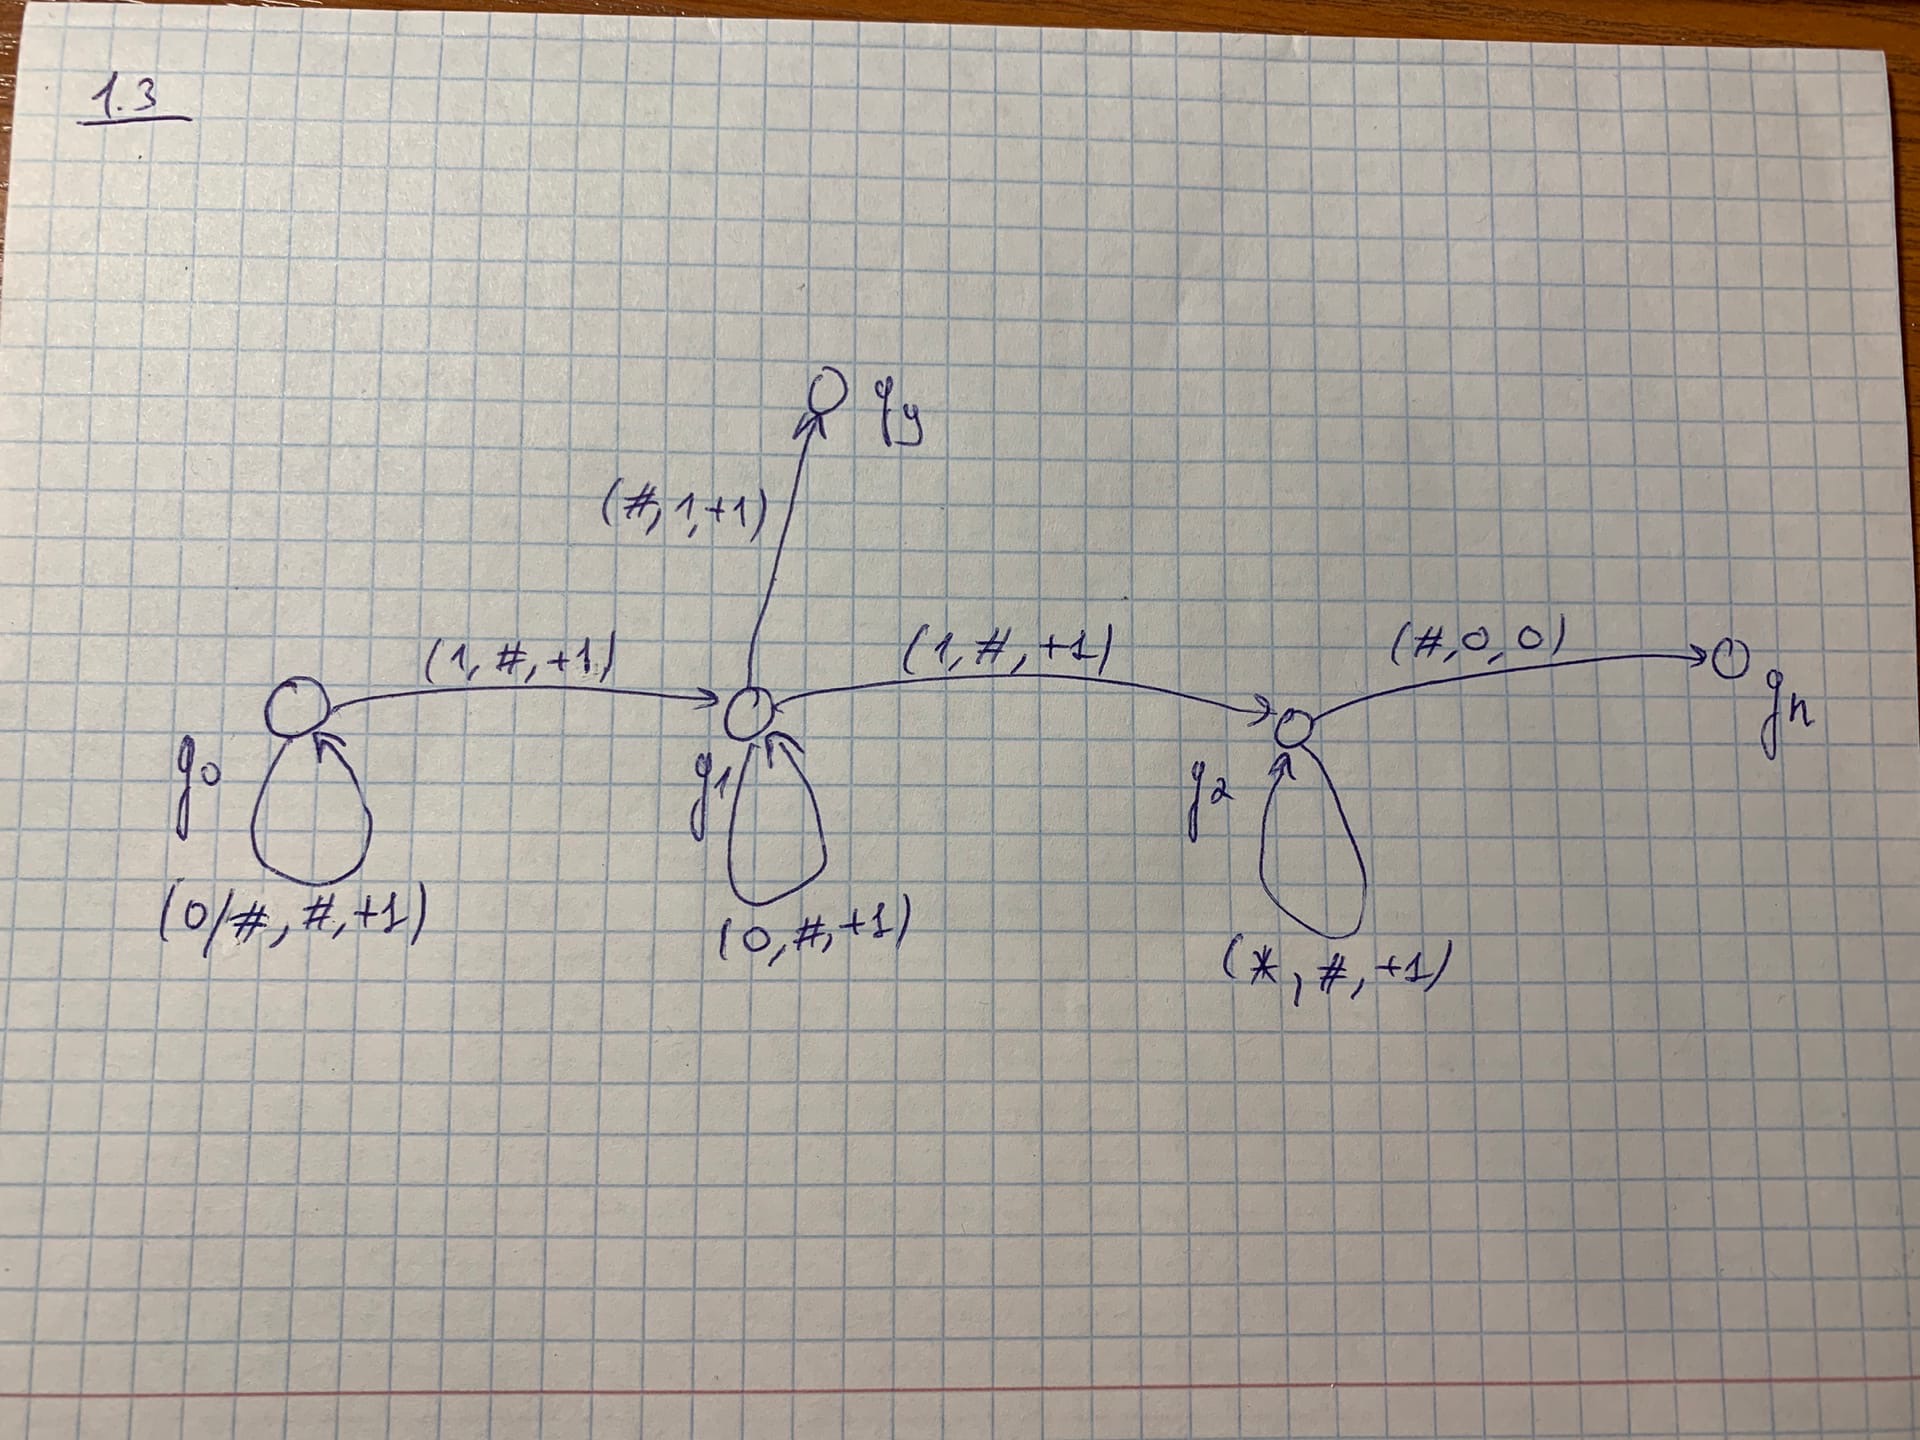 1.3
qy
(#, 1, +1)
(1, #, +1)
(1, #, +1)
(#, 0, 0)
qn
q0
q1
q2
(0/#, #, +1)
(0, #, +1)
(*, #, +1)